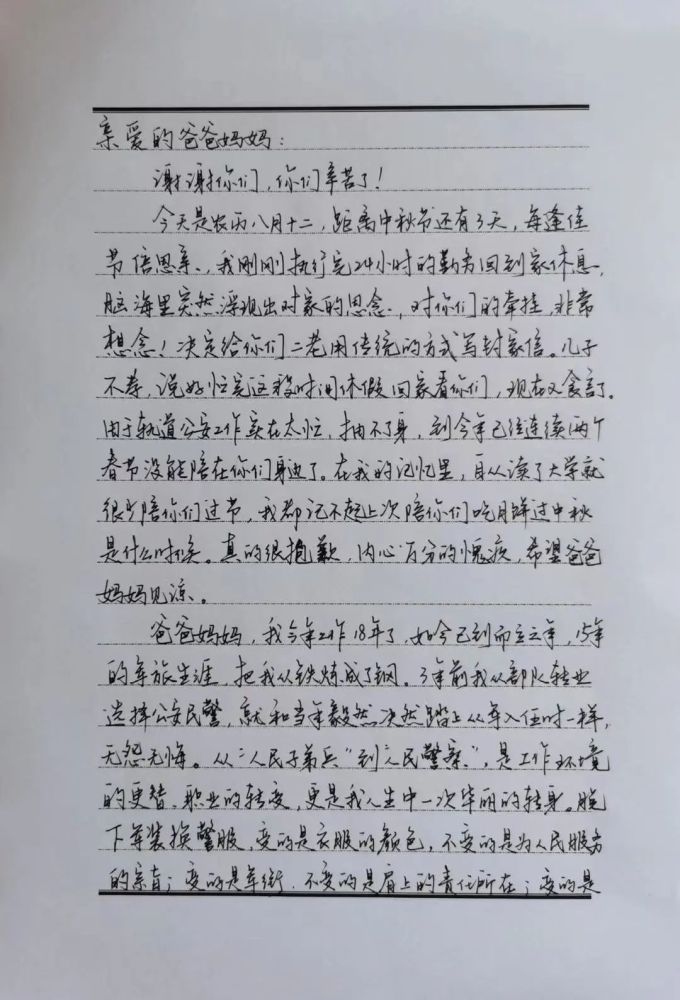 亲爱的爸爸妈妈：
谢谢你们，你们辛苦了！
今天是农历八月十二，距离中秋节还有3天，每逢佳
节倍思亲，我刚刚执行完24小时的勤务回到家休息，
脑海里突然浮现出对家的思念，对你们的牵挂，非常
想念！决定给你们二老用传统的方式写封家信。儿子
不孝，说好忙完这段时间休假回家看你们，现在又食言了。
由于轨道公安工作实在太忙，抽不了身，到今年已经连续两个
春节没能陪在你们身边了。在我的记忆里，自从读了大学就
很少陪你们过节，我都记不起上次陪你们吃月饼过中秋
是什么时候。真的很抱歉，内心百分的愧疚，希望爸爸
妈妈见谅。
爸爸妈妈，我今年工作18年了，如今已到而立之年，15年
的军旅生涯，把我从铁炼成了钢。3年前我从部队转业
选择公安民警，就和当年毅然决然踏上从军入伍时一样，
无怨无悔。从“人民子弟兵”到“人民警察”，是工作环境
的更替、职业的转变，更是我人生中一次华丽的转身。脱
下军装换警服，变的是衣服的颜色，不变的是为人民服务
的宗旨；变的是军衔，不变的是肩上的责任所在；变的是